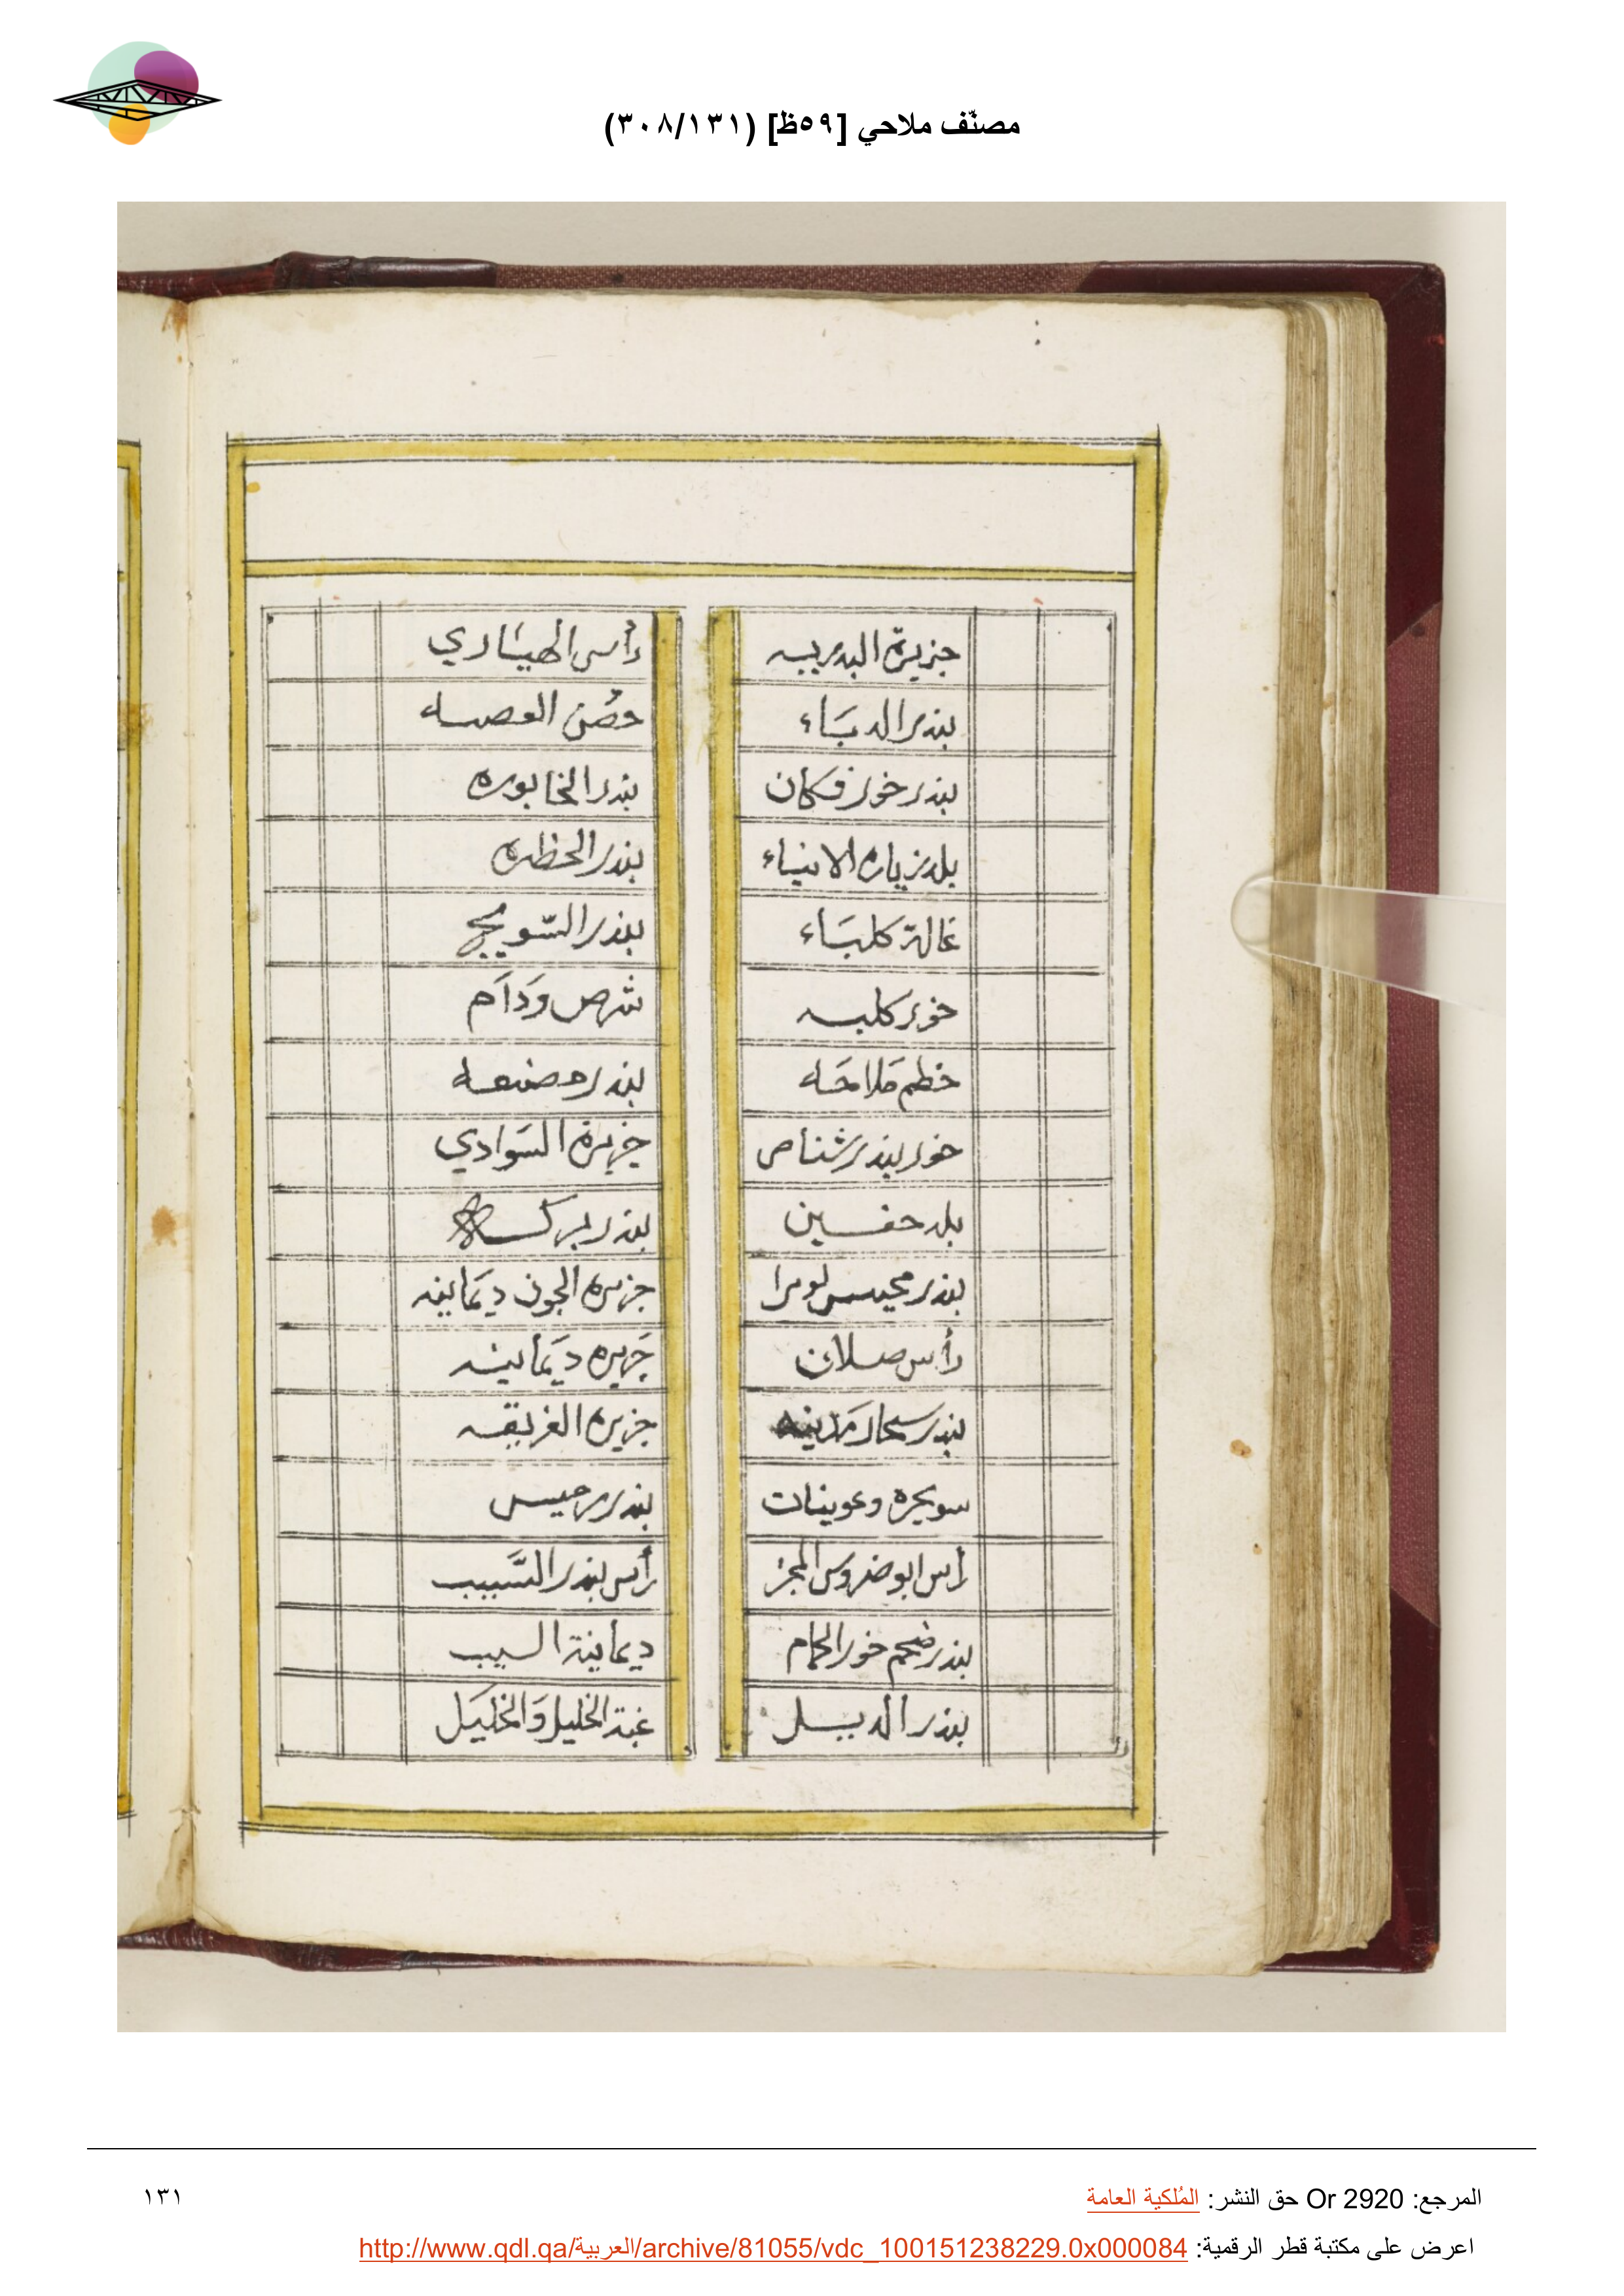 مصنّف ملاحي [٥٩ظ] (٣٠٨/١٣١)
جزيرة البدييه
بندر الدبَاء
بندر خور فكان
بلد زباره الانبياء
غالة كلبَاء
خور كلبه
خطم مَلاحَه
خور بندر شناص
بلد حفين
بندر مجيس لوىرا
رأس صلان
بندر سحار مَدينه
سويحره وعوينات
رأس ابو ضروس المجز
بندر ضحم خور الحمام
بندر الديل
رأس الهيَاري
حصُن العصه
بندر الخابوره
بندر الحظره
بندر السّويج
شرص وَدَام
بندر مصنعه
جزيرة السَوادي
بندر بركه
جزيره الجون ديمَانيه
جَزيره ديمَانيه
جزيره الغريقه
بندر رميس
رأس بندر السَّيب
ديمانية السيب
غبة الخليل وَالخليَل
المرجع: Or 2920 حق النشر: المُلكية العامة
١٣١
اعرض على مكتبة قطر الرقمية: http://www.qdl.qa/العربية/archive/81055/vdc_100151238229.0x000084